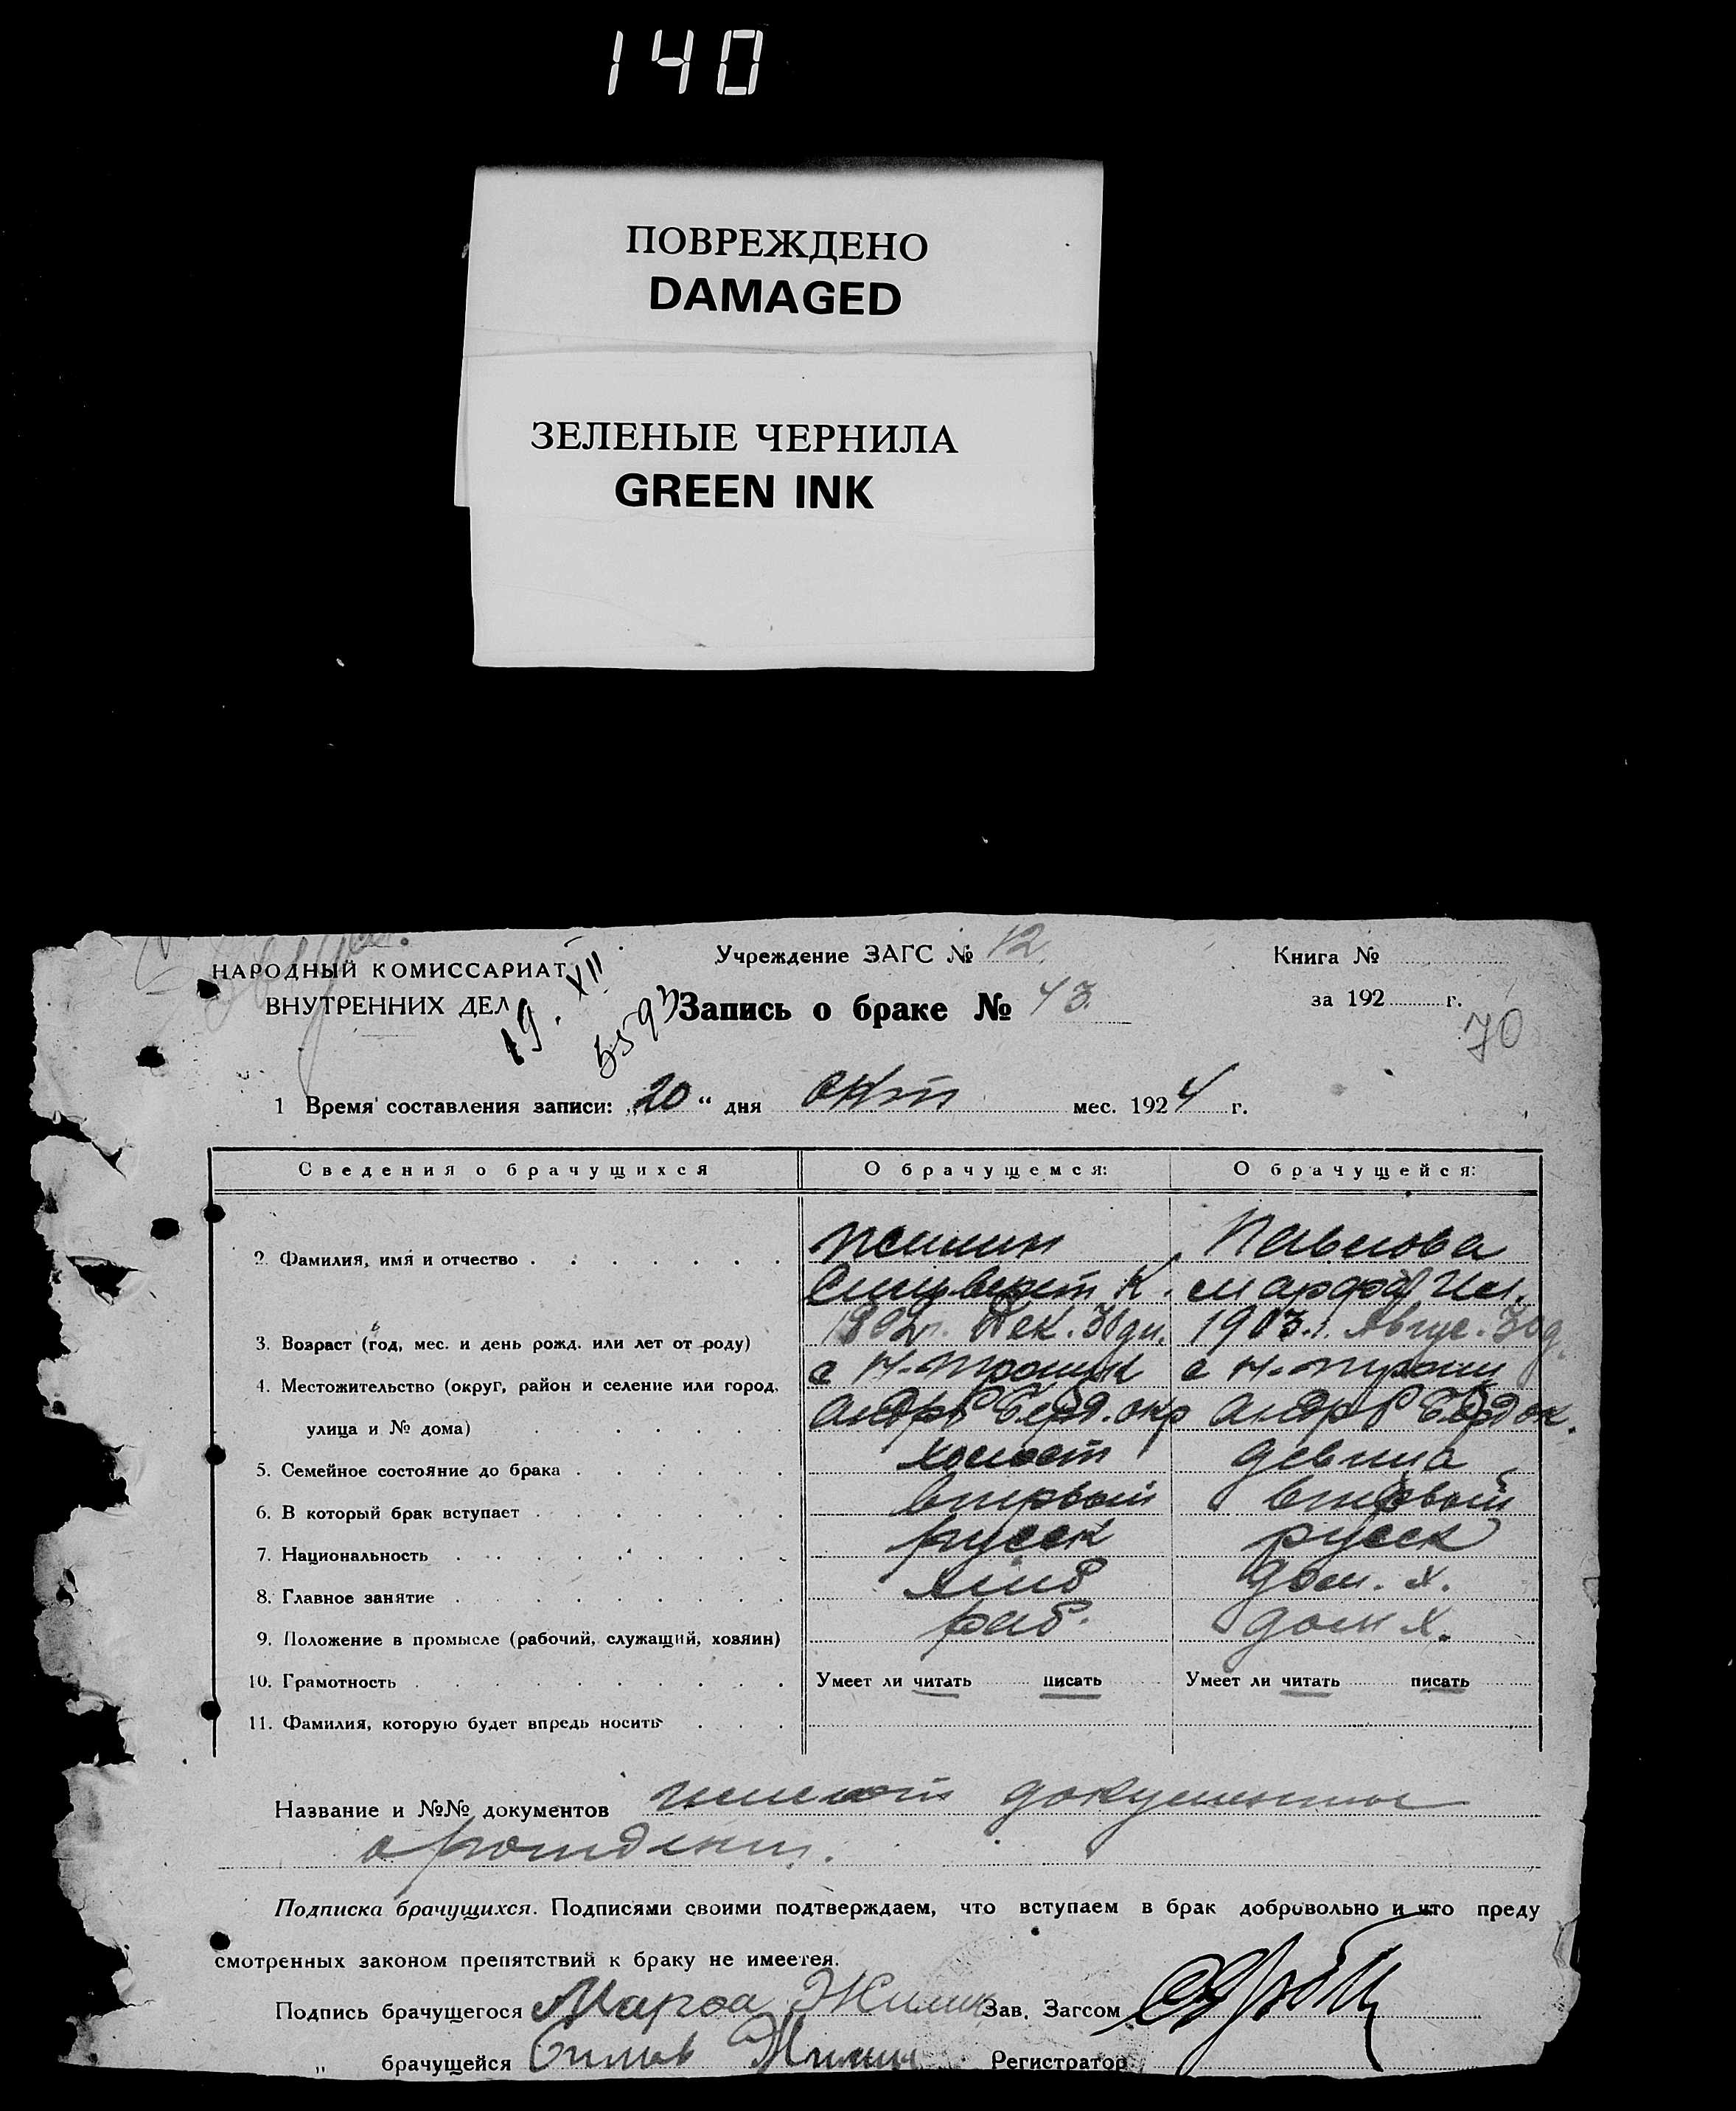 140
ПОВРЕЖДЕНО
DAMAGED
ЗЕЛЕНЫЕ ЧЕРНИЛА
GREEN INK
НАРОДНЫЙ КОМИССАРИАТ
ВНУТРЕННИХ ДЕЛ
19. XII
Учреждение ЗАГС № 12.
Запись о браке № 43.
Книга №
за 192 г.
70
1 Время составления записи: „20“ дня окт мес. 1924 г.
Сведения о брачущихся О брачущемся: О брачущейся:
2. Фамилия, имя и отчество Жилин Павлова
К. Марфа
3. Возраст (год, мес. и день рожд. или лет от роду) 1902 г. Дек. 30 дн. 1903 г. Авгус. 30 д.
4. Местожительство (округ, район и селение или город, с Н.-Троицк с Н.-Троиц
улица и № дома) Андр Р Берд. окр Андр Р Берд ок.
5. Семейное состояние до брака холост девица
6. В который брак вступает впервый впервый
7. Национальность русск русск
8. Главное занятие хлиб дом. х.
9. Положение в промысле (рабочий, служащий, хозяин) раб. дом х.
10. Грамотность Умеет ли читать писать Умеет ли читать писать
11. Фамилия, которую будет впредь носить
Название и №№ документов документы
о рождении.
Подписка брачущихся. Подписями своими подтверждаем, что вступаем в брак добровольно и что преду
смотренных законом препятствий к браку не имеется.
Подпись брачущегося Марфа Жилин Зав. Загсом
„ брачущейся Жилин Регистратор